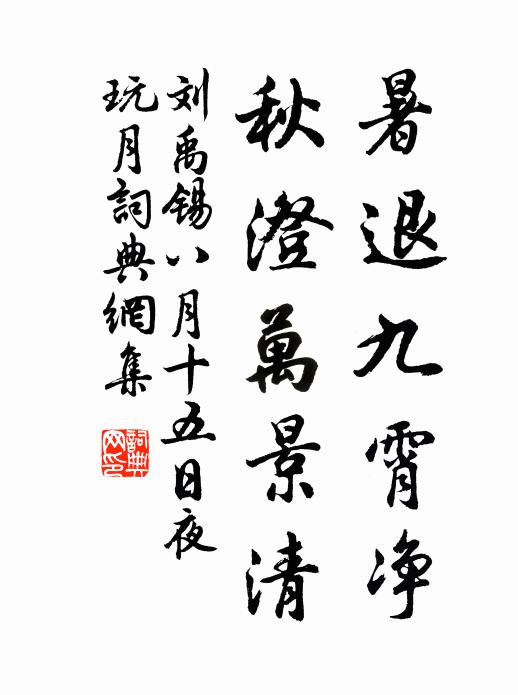 暑退九霄净
秋澄萬景清
刘禹锡八月十五日夜
玩月詞典網集
詞典网印